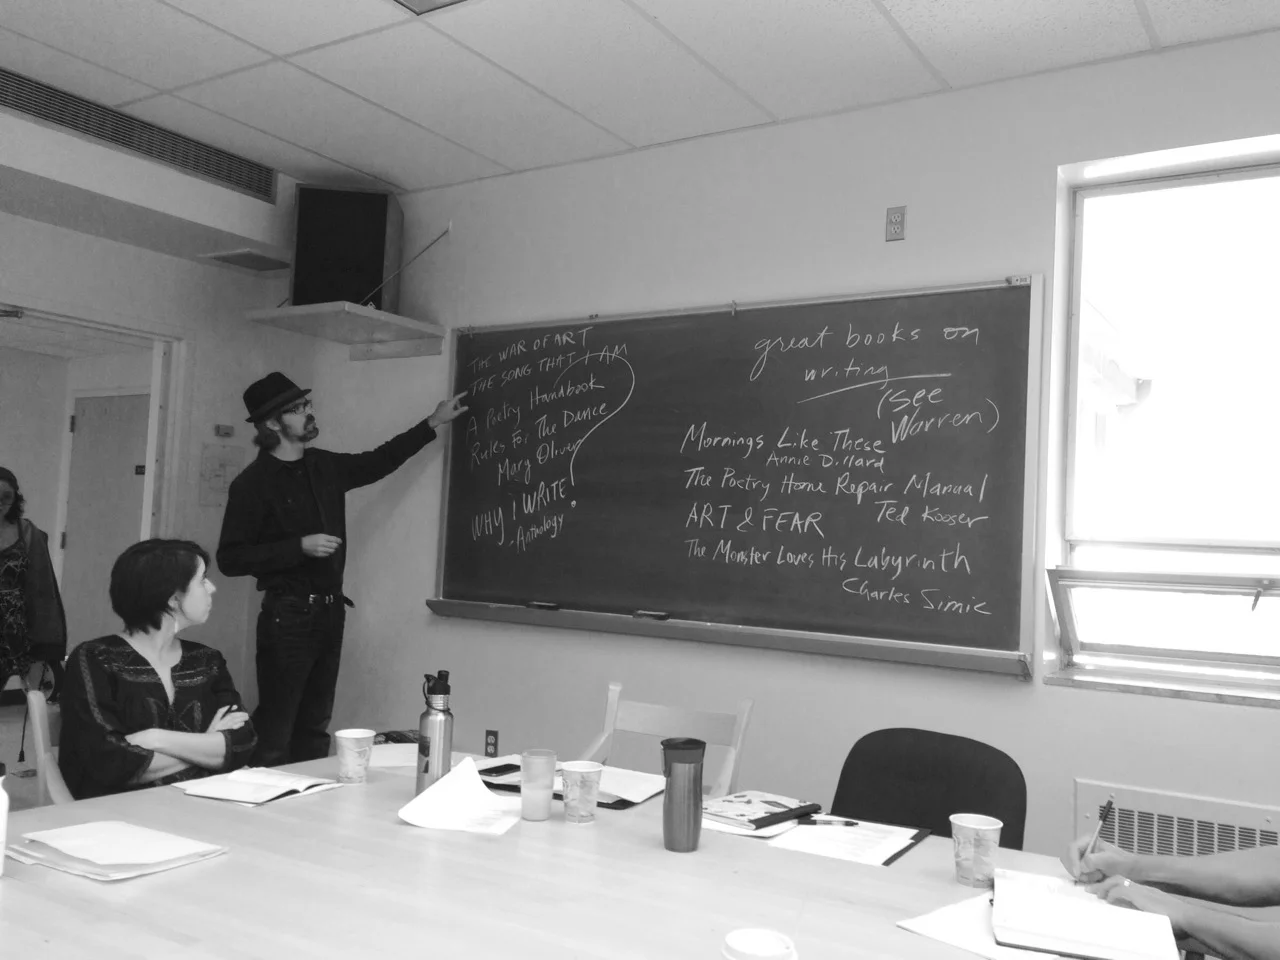 THE WAR OF ART
THE SONG THAT I AM
A Poetry Handbook
Rules For The Dance
Mary Oliver
WHY I WRITE?
-Anthology
great books on
writing
(see
Warren)
Mornings Like These
Annie Dillard
The Poetry Home Repair Manual
Ted Kooser
ART & FEAR
The Monster Loves His Labyrinth
Charles Simic